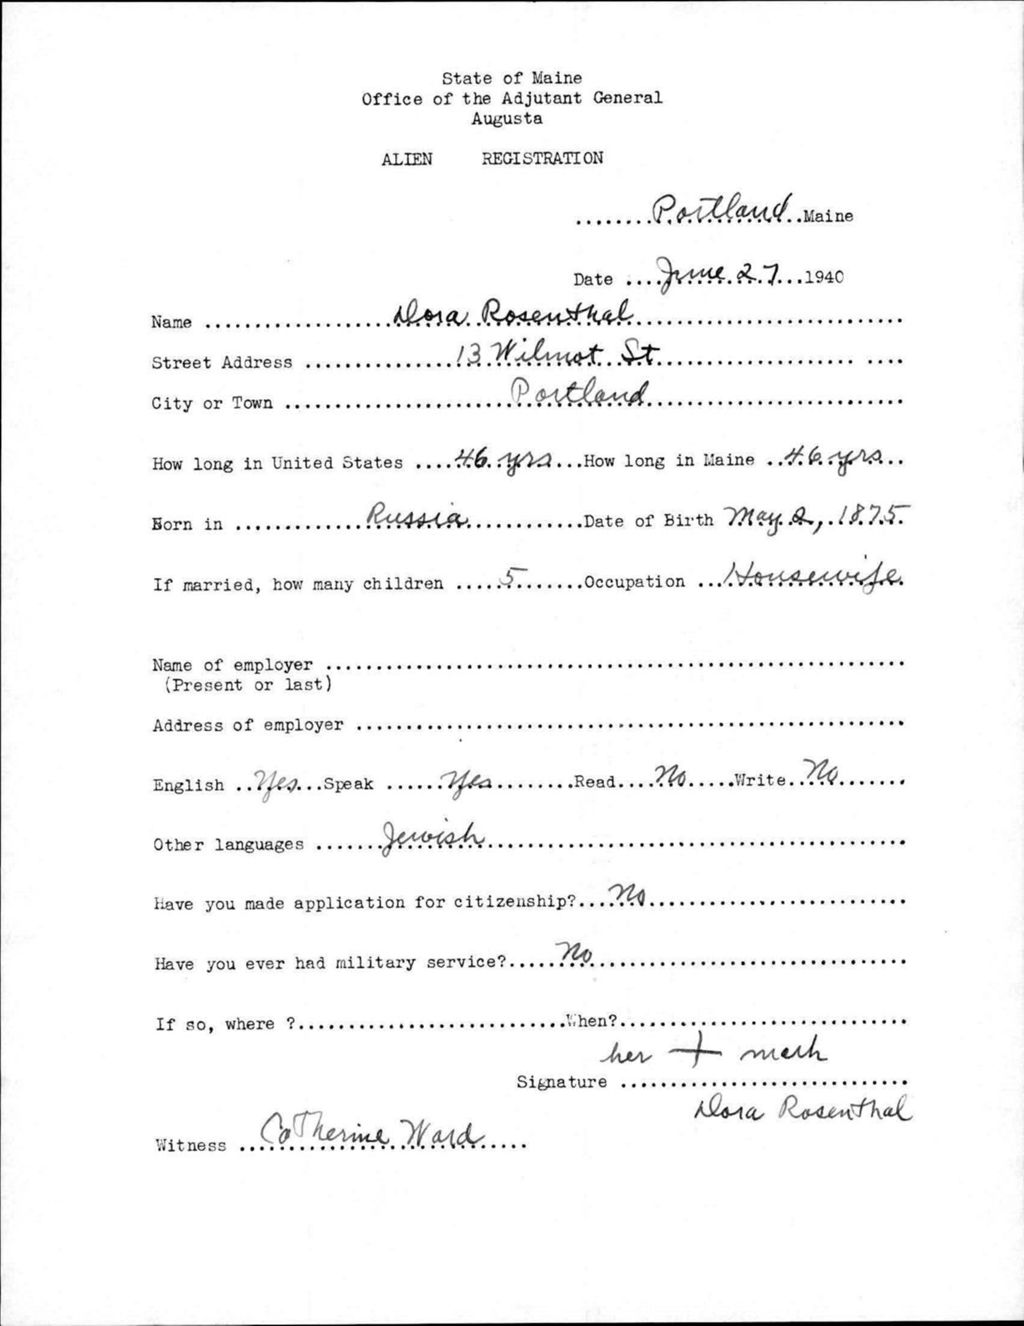 State of Maine
Office of the Adjutant General
Augusta
ALIEN REGISTRATION
........Portland..Maine
Date ....June 27...1940
Name ...................Dora Rosenthal...........................
Street Address ...............13 Wilmot St................. ....
City or Town ......................Portland..........................
How long in United States ....46 yrs...How long in Maine ..46 yrs...
Born in .............Russia............Date of Birth May 2, 1875.
If married, how many children .....5.......Occupation ...Housewife.
Name of employer ......................................................
(Present or last)
Address of employer ...................................................
English ..Yes...Speak ......Yes.........Read....No.....Write..No.......
Other languages .......Jewish.......................................
Have you made application for citizenship?...No.........................
Have you ever had military service?.....No..............................
If so, where ?..........................When?...........................
her + mark
Signature .............................
Dora Rosenthal
Witness ...Catherine Ward.....